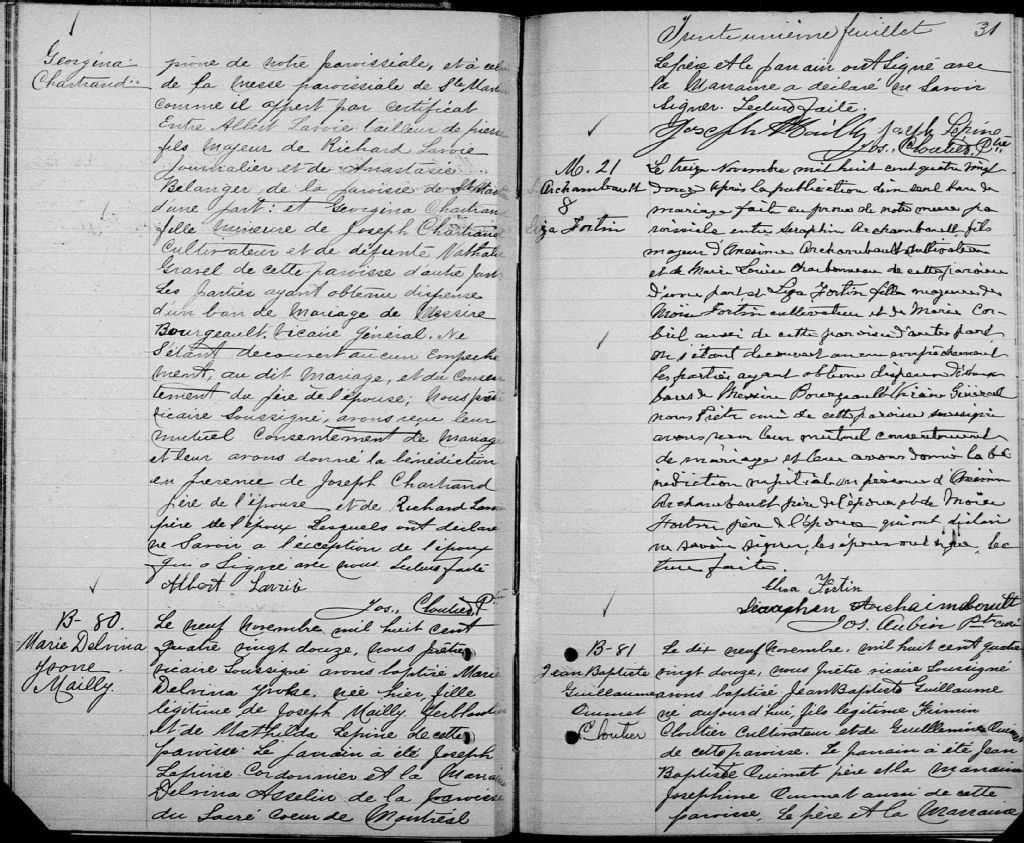 Georgina
Chartrand
prone de notre paroissiale, et à celui
de la messe paroissiale de Ste Martin
comme il appert par certificat
Entre Albert Lavoie tailleur de pierre
fils Majeur de Richard Lavoie
Journalier et de Anastasie
Belanger de la paroisse de St Martin
d'une part: et Georgina Chartrand
fille mineure de Joseph Chartrand
Cultivateur et de défunte Nathalie
Gravel de cette paroisse d'autre part
Les parties ayant obtenu dispense
d'un ban de Mariage de Messire
Bourgeault, Vicaire Général. Ne
S'étant decouvert aucun Empeche
ment, au dit Mariage, et du Consen
tement du père de l'épouse; Nous prêtre
vicaire Soussigné, avons reçu leur
mutuel Consentement de Mariage
et leur avons donné la bénédiction
en presence de Joseph Chartrand
père de l'épouse et de Richard Lavoie
père de l'époux Lesquels ont déclaré
ne Savoir a l'éxception de l'époux
qui a Signé avec nous. Lecture faite
Albert Lavoie
Jos. Cloutier Ptre
B- 80.
Marie Delvina
Yvone
Mailly.
Le neuf Novembre mil huit cent
quatre vingt douze, nous prêtre
vicaire Soussigné avons baptisé Marie
Delvina Yvone. née hier, fille
legitime de Joseph Mailly Ferblantier
et de Mathilda Lepine de cette
paroisse. Le parrain a été Joseph
Lepine Cordonnier et la Marraine
Delvina Asselin de la paroisse
du Sacré Coeur de Montréal
Trente unième feuillet 31
Le père et le parrain ont Signé avec
la Marraine a déclaré ne Savoir
Signer. Lecture faite.
Joseph Mailly Joseph Lépine
Jos. Cloutier Ptre
M. 21
S. Archambault
&
Liza Fortin
Le treize Novembre mil huit cent quatre vingt
douze après la publication d'un seul ban de
mariage faite au prone de notre messe pa
roissiale entre Séraphin Archambault, fils
majeur d'Onésime Archambault cultivateur
et de Marie Louise Charbonneau de cette paroisse
d'une part et Liza Fortin fille majeure de
Moïse Fortin cultivateur et de Marie Cor
beil aussi de cette paroisse d'autre part
ne s'étant decouvert aucun empêchement
les parties ayant obtenu dispense de deux
bans de Messire Bourgeault Vicaire Général
nous Pretre curé de cette paroisse soussigné
avons reçu leur mutuel consentement
de mariage et leur avons donné la bé
nédiction nuptiale en présence d'Onésime
Archambault père de l'époux et de Moïse
Fortin père de l'épouse qui ont déclaré
ne savoir signer, les époux ont signé, lec
ture faite.
Elisa Fortin
Séraphin Archaimboult
Jos. Aubin Ptre curé
B-81
Jean Baptiste
Guillaume
Ouimet
Cloutier
Le dix neuf Novembre, mil huit cent quatre
vingt douze, nous Prêtre vicaire Soussigné
avons baptisé Jean Baptiste Guillaume
né aujourd'hui, fils légitime Firmin
Cloutier Cultivateur et de Guillemine Ouimet
de cette paroisse. Le parrain a été Jean
Baptiste Ouimet père et la Marraine
Josephine Ouimet aussi de cette
paroisse, Le père et la Marraine